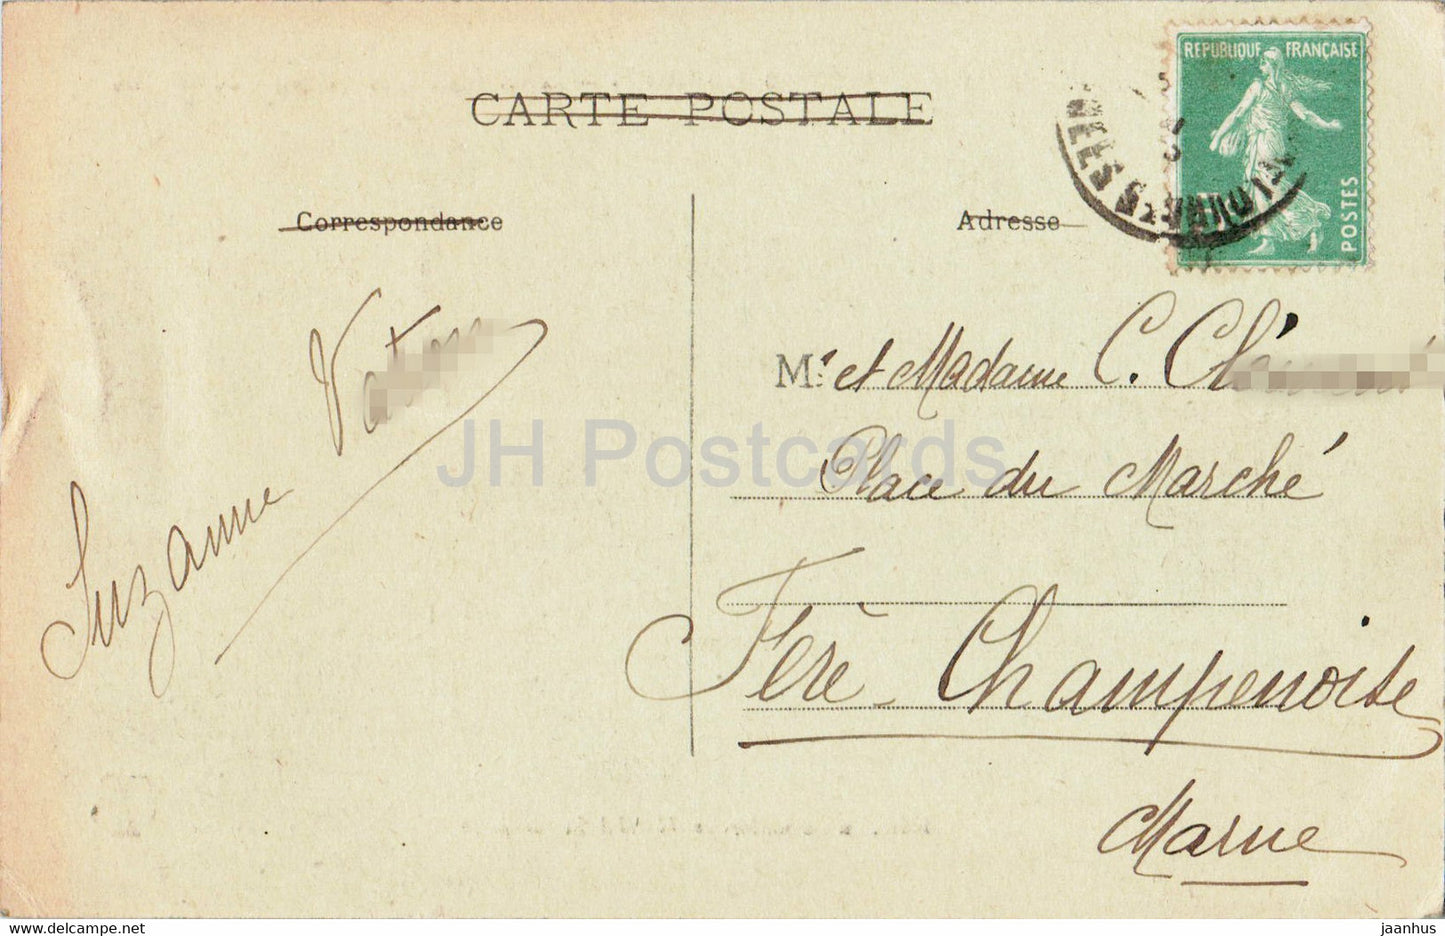 CARTE POSTALE
Correspondance
Adresse
REPUBLIQUE FRANÇAISE
POSTES
Suzanne
M.r et Madame C.
Place du Marché
Fère-Champenoise
Marne
JH Postcards
www.delcampe.net
jaanhus